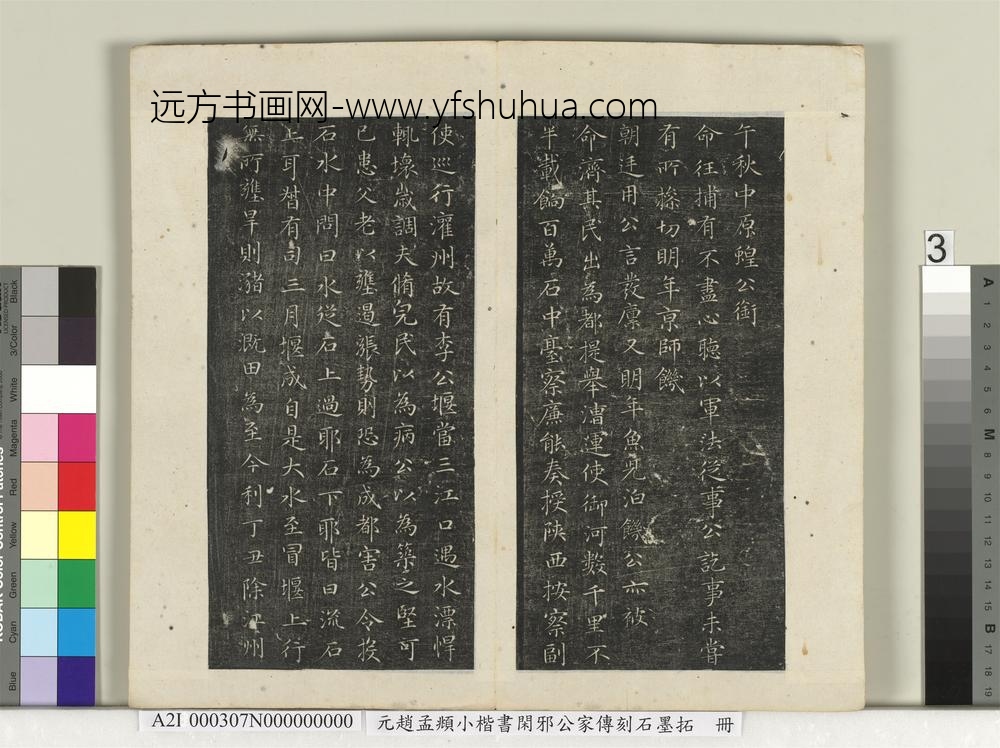 远方书画网-www.yfshuhua.com
午秋中原蝗公銜
命往捕有不盡心聽以軍法從事公訖事未嘗
有所撓切明年京師饑
朝廷用公言發廩又明年魚兒泊饑公亦被
命濟其民出為都提舉漕運使御河數千里不
半載餉百萬石中臺察廉能奏授陝西按察副
使巡行灌州故有李公堰當三江口遇水漂悍
輒壞歲調夫脩完民以為病公以為築之堅可
已患父老以壅遏漲勢則恐為成都害公令投
石水中問曰水從石上過耶石下耶皆曰流石
上耳督有司三月堰成自是大水至冒堰上行
無所壅旱則瀦以溉田為至今利丁丑除 州
3
A 1 2 3 4 5 6 M 8 9 10 11 12 13 14 15 B 17 18 19
Black
3/Color
White
Magenta
Red
Yellow
Green
Cyan
Blue
A2I 000307N000000000
元趙孟頫小楷書閑邪公家傳刻石墨拓 冊